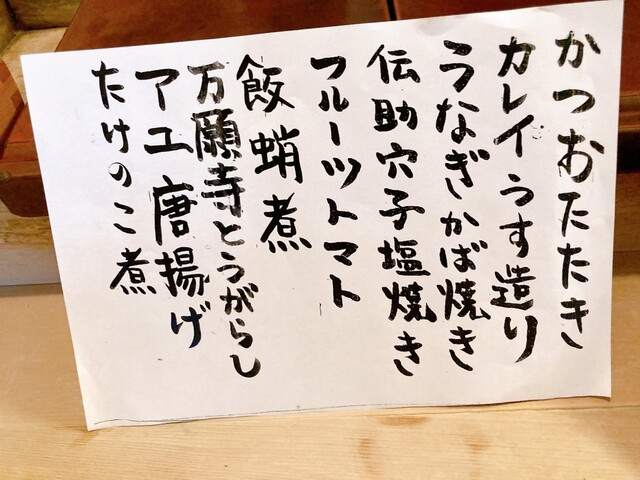 かつおたたき
カレイうす造り
うなぎかば焼き
伝助穴子塩焼き
フルーツトマト
飯蛸煮
万願寺とうがらし
アユ唐揚げ
たけのこ煮